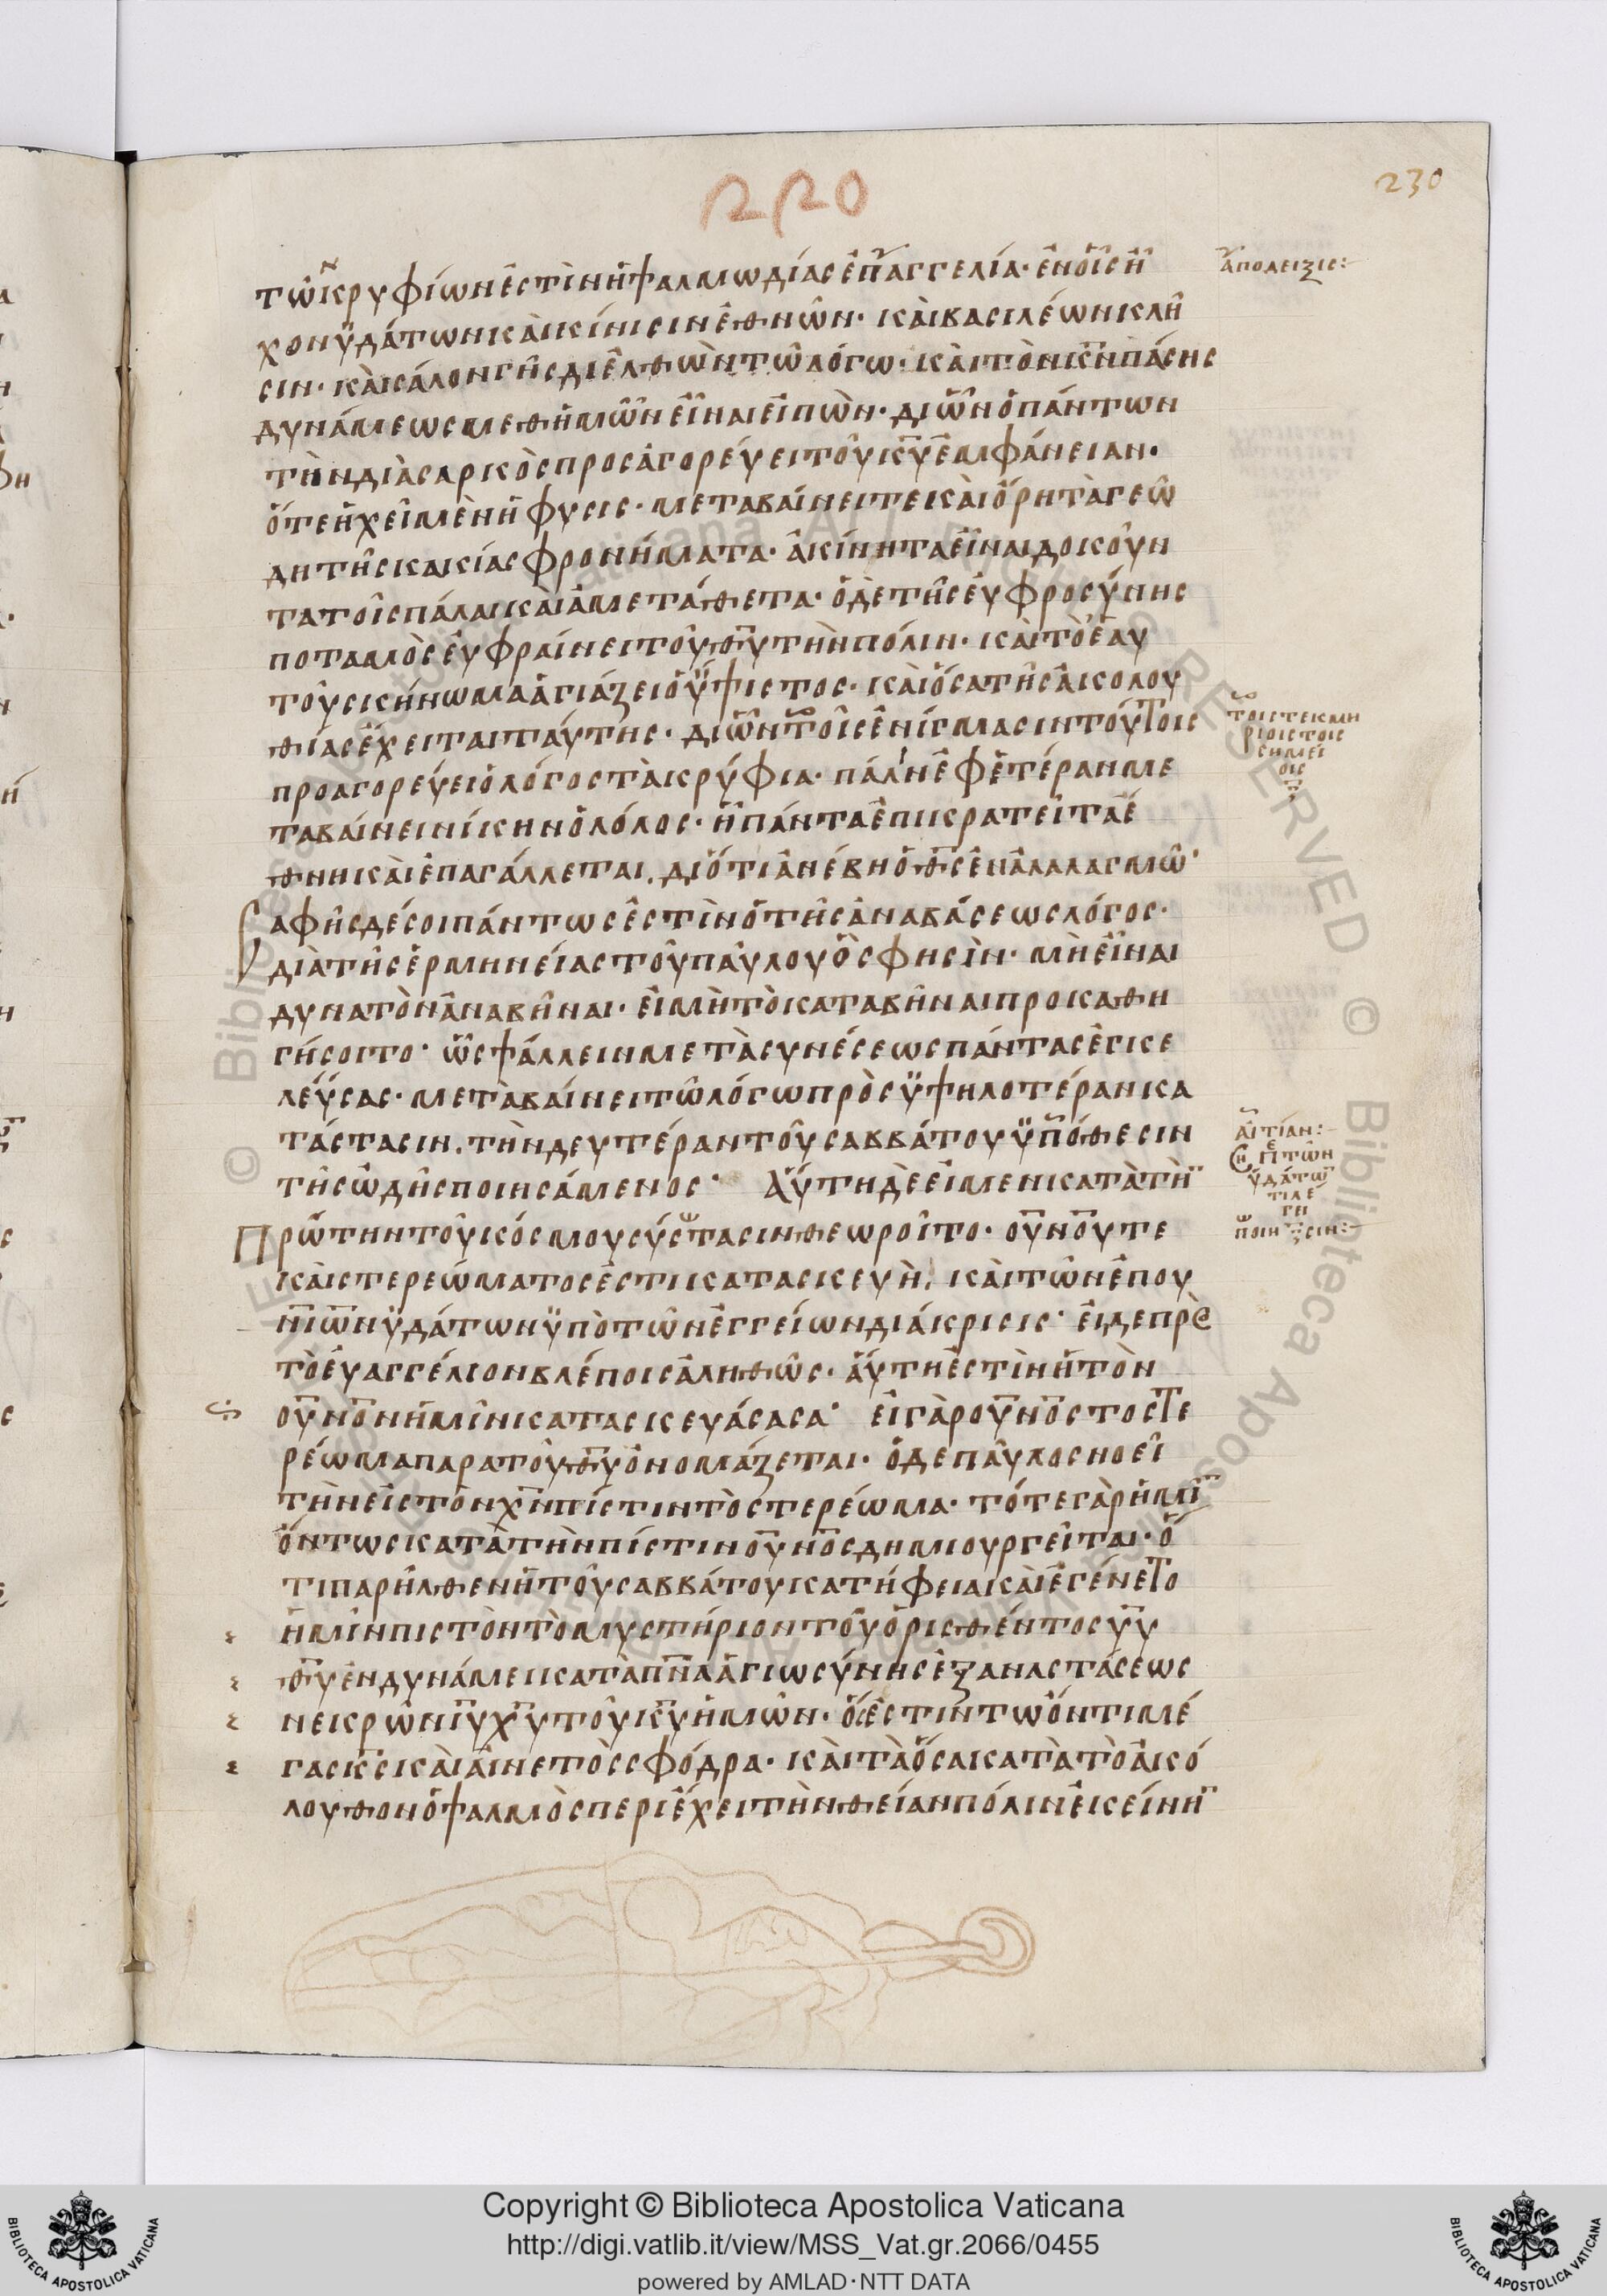 220
230
τῶν κρυφίων ἐστὶν ἡ ψαλμωδίας ἐπαγγελία· ἐν οἷς ἦ
χον ὑδάτων καὶ κίνισιν ἐθνῶν· καὶ βασιλέων κλῆ
σιν· καὶ σάλον γῆς διελθὼν τῶ λόγω· καὶ τὸν κ̅ν̅ πάσης
δυνάμεως μεθ ἡμῶν εἶναι εἰπὼν· δι ὧν ὁ πάντων
τὴν διὰ σαρκὸς προσαγορέυει τοῦ κ̅υ̅ ἐμφάνειαν·
ὅτε ἠχεῖ μὲν ἡ φυσις· μεταβαίνει τε καὶ ὄρη τὰ γεώ
δη τῆς κακίας φρονήματα· ἀκίνητα εἶναι δοκοῦν
τα τοῖς πάλαι καὶ ἀμετάθετα· ὁ δὲ τῆς ἐυφροσύνης
ποταμὸς ἐυφραίνει τοῦ θ̅υ̅ τὴν πόλιν· καὶ τὸ ἑαυ
τοῦ σκήνωμα ἁγιάζει ὁ ὕψιστος· καὶ ὅσα τῆς ἀκολου
θίας ἔχεται ταύτης· δι ὧν τοῖς ἐνίγμασιν τούτοις
προαγορέυει ὁ λόγος τὰ κρύφια· πάλιν ἐφ ἑτέραν με
ταβαίνει νίκην ὁ λόγος· ἣ πάντα ἐπικρατεῖ τὰ ἔ
θνη καὶ ἐπαγάλλεται. διότι ἀνέβη ὁ θ̅ς̅ ἐν ἀλαλαγμῶ·
Σαφὴς δέ σοι πάντως ἐστὶν ὁ τῆς ἀναβάσεως λόγος·
διὰ τῆς ἑρμηνείας τοῦ παύλου ὅς φησὶν· μὴ εἶναι
δυνατὸν ἀναβῆναι· εἰ μὴ τὸ καταβῆναι προκαθη
γήσοιτο· ὡς ψάλλειν μετὰ συνέσεως πάντας ἐγκε
λέύσας· μεταβαίνει τῶ λόγω πρὸς ὑψηλοτέραν κα
τάστασιν. τὴν δευτέραν τοῦ σαββάτου ὑπόθεσιν
τῆς ὠδῆς ποιησάμενος· Ἁύτη δὲ εἰ μεν κατὰ τὴν
Πρώτην τοῦ κόσμου σύστασιν θεωροῖτο· ουνου τε
καὶ στερεώματος ἐστι κατασκευὴ· καὶ τῶν ἐπου
νιων ὑδάτων ὑπὸ τῶν ἐγγείων διάκρισις· εἰ δε πρὸς
τὸ ἐυαγγέλιον βλέποις ἀληθῶς· ἁύτη ἐστὶν ἡ τὸν
ουνον ἡμῖν κατασκευάσασα· εἰ γὰρ ουνος το στε
ρέωμα παρα τοῦ θ̅υ̅ ὀνομάζεται· ὁ δε παῦλος νοεῖ
τὴν εἰς τὸν χ̅ν̅ πίστιν τὸ στερέωμα· τότε γὰρ ἡμῖν
ὄντως κατὰ τὴν πίστιν ουνος δημιουργεῖται· ὅ
τι παρῆλθεν ἡ τοῦ σαββάτου κατήφεια καὶ ἐγένετο
ἡμῖν πιστὸν τὸ μυστήριον τοῦ ὁρισθέντος υ̅υ̅
θ̅υ̅ ἐν δυνάμει κατὰ π̅ν̅α̅ ἁγιωσύνης ἐξ αναστάσεως
νεκρῶν ι̅υ̅ χ̅υ̅ τοῦ κ̅υ̅ ἡμῶν· ὅς ἐστιν τω ὄντι μέ
γας κ̅ς̅ καὶ αἰνετὸς σφόδρα· καὶ τὰ ὅσα κατὰ τὸ ἀκό
λουθον ὁ ψαλμὸς περιέχει τὴν θείαν πόλιν ἐκείνην
ἀπόδειξις:
τοις τεκμη
ριοις τοις
σημεί
οις
ἀιτίαν:
τῶν
ὑδάτω
ποιη σιν:
© Biblioteca Apostolica Vaticana ALL RIGHTS RESERVED
Copyright © Biblioteca Apostolica Vaticana
http://digi.vatlib.it/view/MSS_Vat.gr.2066/0455
powered by AMLAD·NTT DATA
BIBLIOTECA APOSTOLICA VATICANA
BIBLIOTECA APOSTOLICA VATICANA